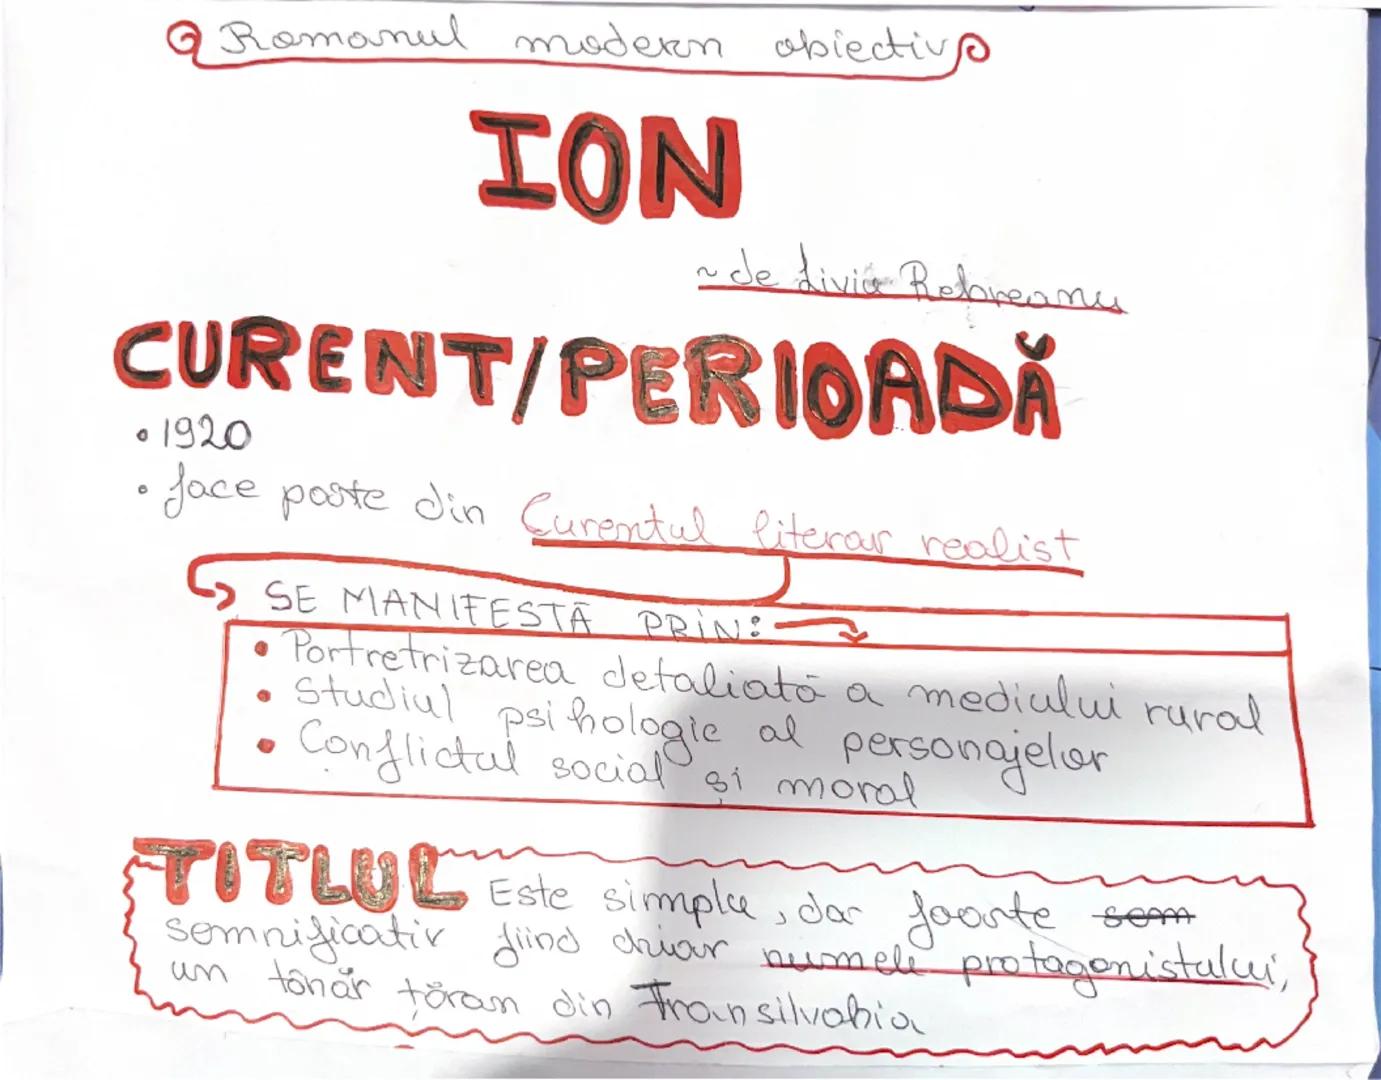 Romanul modern obiectiv
ION
~ de Liviu Rebreanu
CURENT/PERIOADĂ
• 1920
• face parte din Curentul literar realist
SE MANIFESTĂ PRIN:
• Portretrizarea detaliată a mediului rural
• Studiul psihologic al personajelor
• Conflictul social și moral
TITLUL Este simplu, dar foarte sem
semnificativ fiind chiar numele protagonistului,
un tânăr țăran din Transilvania